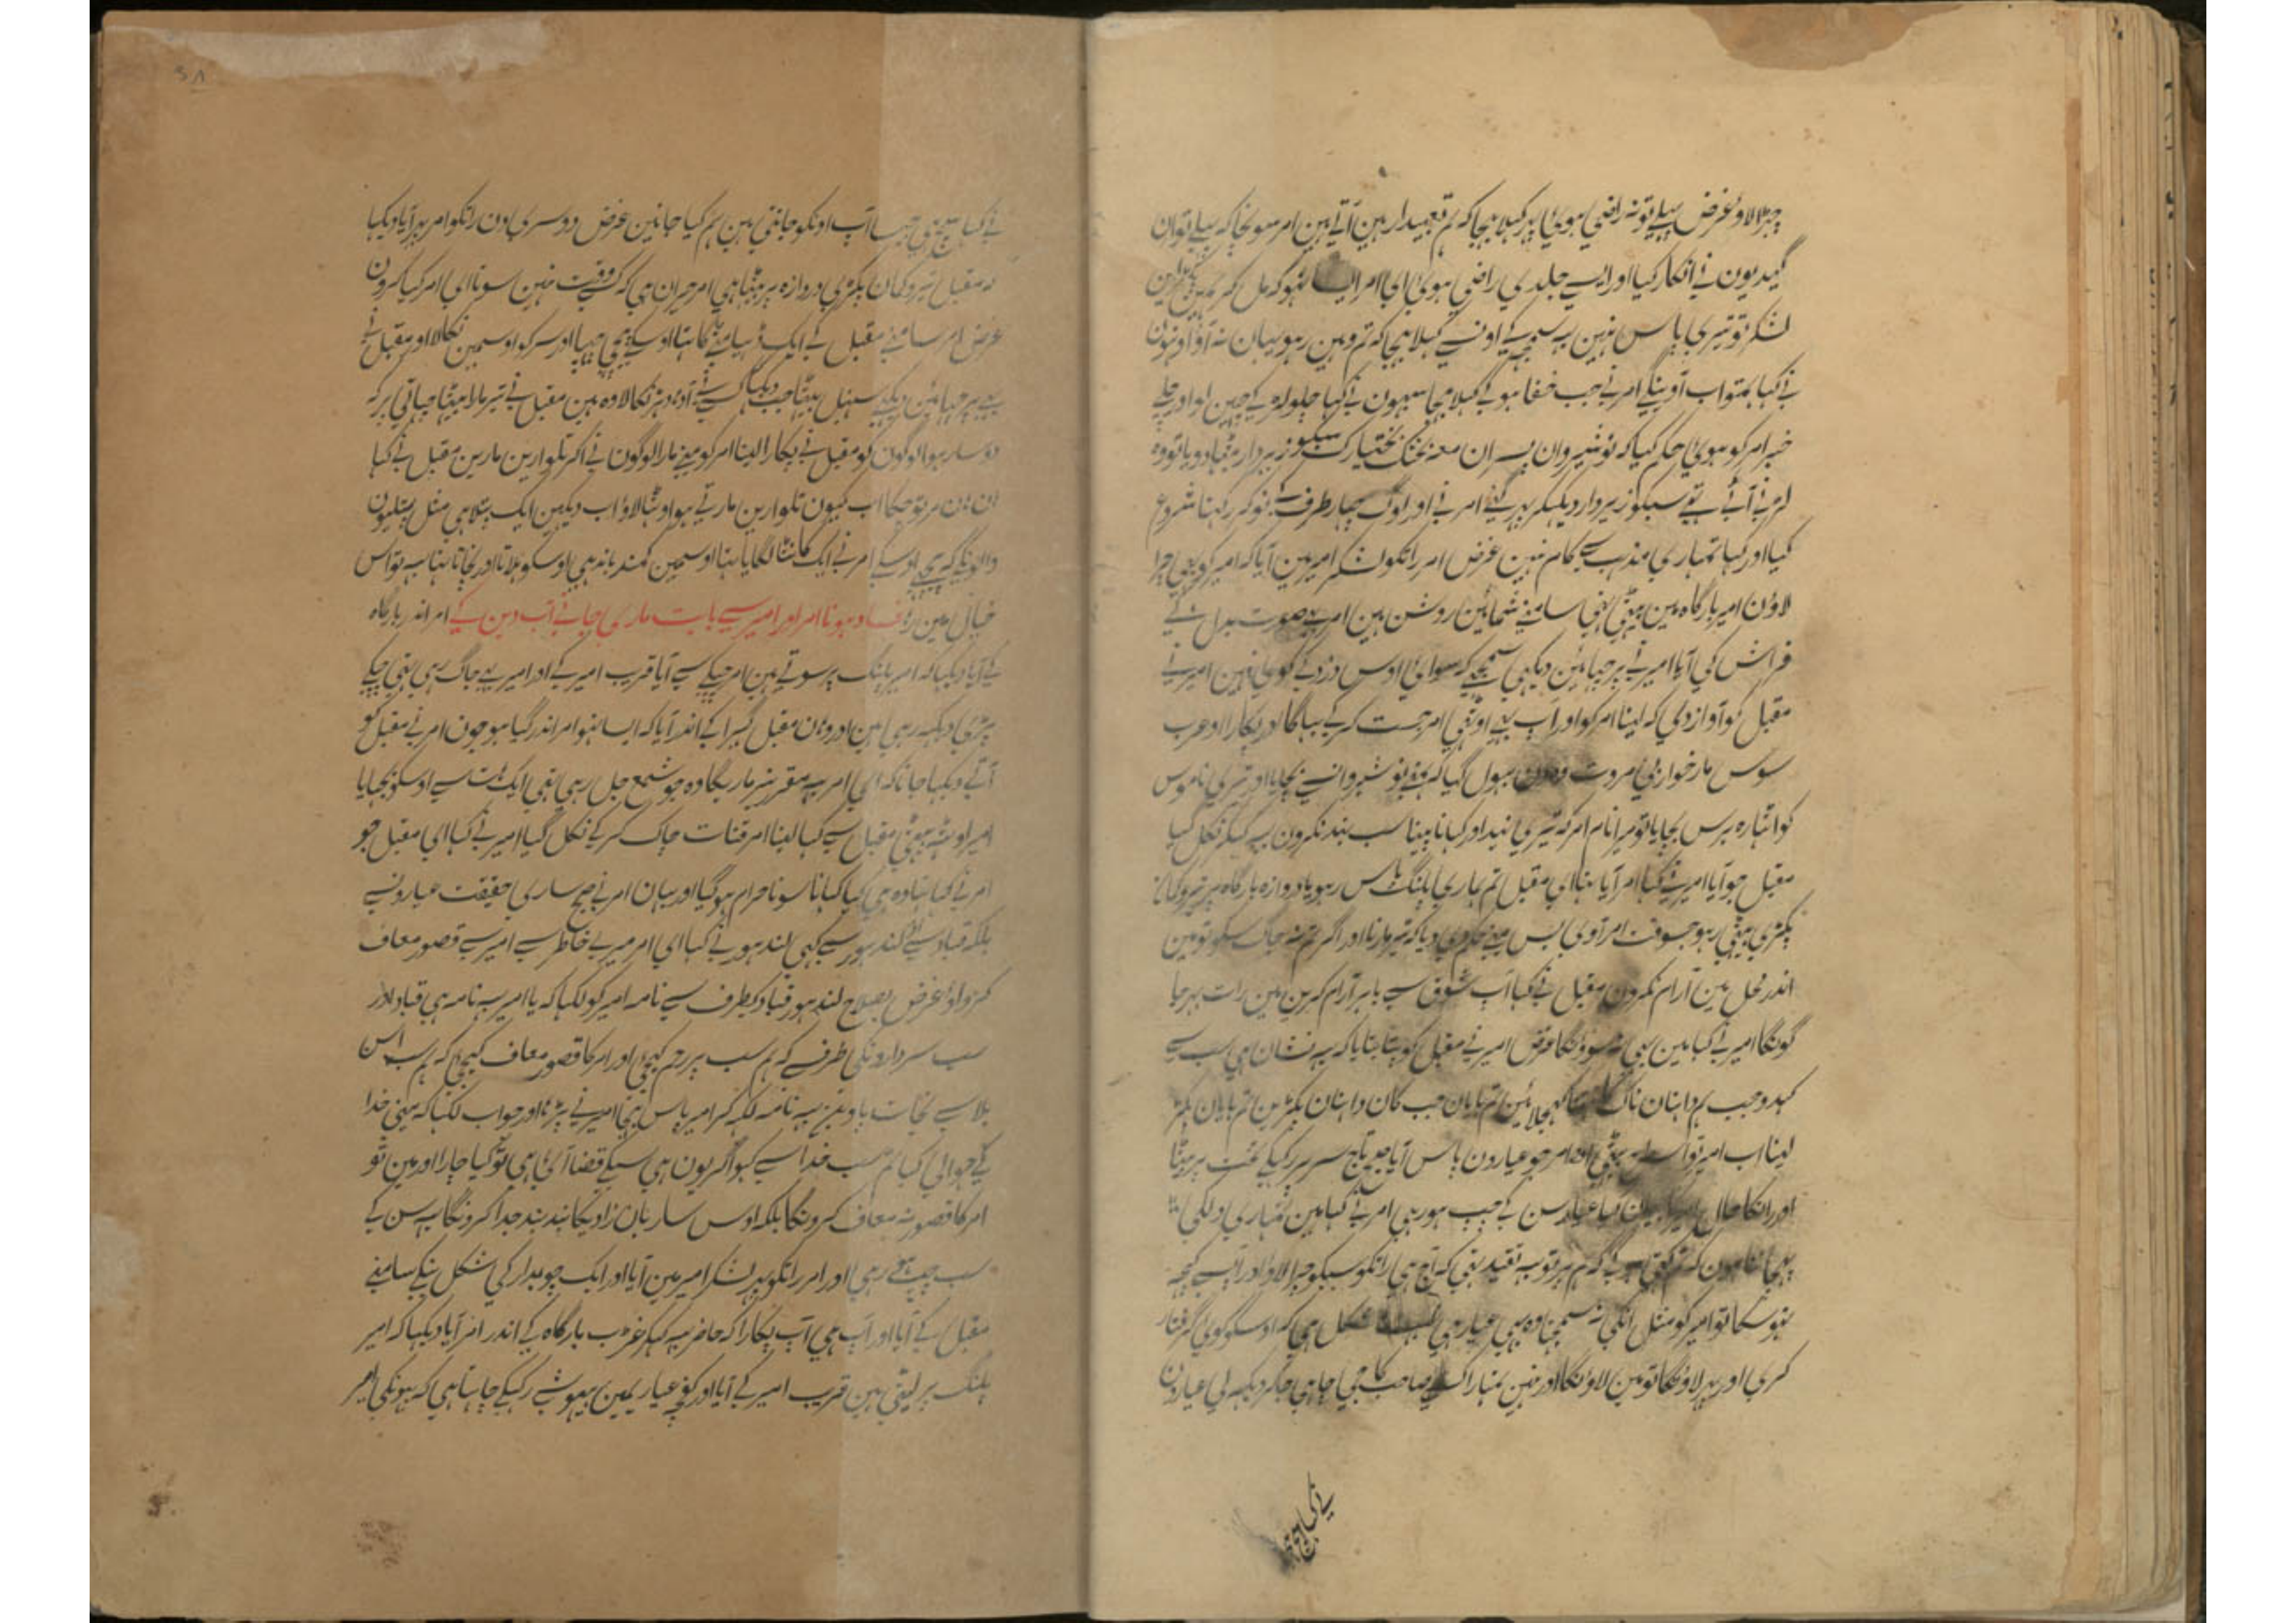 چڑا لاو غرض پہلے تو نہ راضی ہوی پر کہلا بھیجا کہ ہم قعیدار ہین آتے ہین امر سونچا کہ پہلے تو ان
گیدیون نے انکار کیا اور ایسے جلدی راضی ہوی ای امر ایسا نہو کہ مل کر
لشکر تو تیری پاس نہین یہ سمجھ کے اونسے کہلا بھیجا کہ تم وہین رہو یہان نہ آو اونہون
نے کہا ہمتو اب آوینگے امر نے جب خفا ہو کے کہلا بھیجا سبہون نے کہا چلو لوہ کے چہین لو اور چلے
خبر امر کو ہوی حکم کیا کہ نوشیروان پسران معہ بختک بختیارک سبکو زیر دار بٹہا دو یا تو وہ
لڑنے آئے تہے سبکو زیر دار دیکہکر پہر گئے امر نے اور لوگ چار طرف نوکر رکہنا شروع
کیا اور کہا تمہاری مذہب سے کام نہین غرض امر راتکو لشکر امیر مین آیا کہ امیر کو بہی چرا
لاؤن امیر بارگاہ مین بیٹہی تہی سامنے شمائین روشن ہین امر بصورت بدل کے
فراش کی آیا امیر نے پرچہائین دیکہی سمجہے کہ سوای اوس دزد کے کوی نہین امیر نے
مقبل کو آواز دی کہ لینا امر کو اور آپ بہی اوٹہی امر جست کر کے بہاگا اور پکارا او عرب
سوس مار خوار بی مروت وہ دن بہول گیا کہ مینے نوشیروانسے بچایا اور تیری ناموس
کو اٹہارہ برس بچایا تو میرا نام امر کہ تیری نیند اور کہانا پینا سب بند نکرون یہ کہکر نکل گیا
مقبل جو آیا امیر نے کہا امر آیا تہا ای مقبل تم ہماری پلنگ پاس رہو یا دروازہ بارگاہ پر تیر و کمان
پکڑی بیٹہی رہو جسوقت امر آوی بس مینے حکم دیا کہ تیر مارنا اور اگر تم نہ جاگ سکو تو مین
اندر محل مین آرام نکرون مقبل نے کہا آپ شوق سے باہر آرام کرین مین رات بہر جا
گونگا امیر نے کہا مین بہی نہ سوونگا غرض امیر نے مقبل کو پتا بتایا کہ یہ نشان ہی سب سے
کہدو جب ہم داہنان ناک کہجلائین تم بایان جب کان داہنان پکڑین تم بایان پکڑ
لینا اب امیر تو اسطرح بیٹہی امر جو عیارون پاس آیا تاج سر پر رکہکے تخت پر بیٹہا
اور رانکا حال بیان کیا عیار سن کے چپ ہو رہی امر نے کہا مین تمہاری دلکی
پہچانتا ہون کہ تم ہم پر تو یہ تقید تہی کہ آج ہی راتکو سبکو چرا لاؤ اور آپسے کچہہ
نہوسکا تو امیر کو مثل انکی نہ سمجہنا وہ بہی عیار ہی مشکل ہی کہ اوسکو کوی گرفتار
کری اور پہر لاونگا تو مین لاونگا اور نہین تمہارا کسے صاحب کا جی چاہی جا کر دیکہہ لی عیارون
نے کہا سچ ہی
نے کہا سچ ہی جیسا آپ اونکو جانتی ہین ہم کیا جانین غرض دوسری دن راتکو امر پہر آیا دیکہا
کہ مقبل تیر و کمان پکڑی دروازہ پر بیٹہا ہی امر حیران ہی کہ کسے وقت نہین سوتا ای امر کیا کرون
غرض امر سامنے مقبل کے ایک ٹیلا تہا اوسکے پیچہی چہپا اور سر کو اوسمین نکالا او مقبل نے
پرچہائین دیکہکے سنبہل بیٹہا جب دیکہا کسے نے آدہا دہڑ نکالا وہ ہین مقبل نے تیر مارا بیٹہا چہاتی پر کہ
دوسار ہوا لوگون کو مقبل نے پکارا لینا امر کو مینے مارا لوگون نے آکر تلوارین مارین مقبل نے کہا
ان ان مر تو چکا اب کیون تلوارین مارتے ہو اوٹہا لاؤ اب دیکہین ایک پتلا ہی مثل پتلیون
والونکے پیچہے اوسکے امر نے ایک کانٹا لگایا تہا اوسمین کمند باندہی اوسکو ہلاتا اور نچاتا تہا یہ تو اس
خیال مین رہ فساد ہونا امر اور امیر سے بابت ماری جانے آب دین کے امر اندر بارگاہ
کے آیا دیکہا کہ امیر پلنگ پر سوتے ہین امر چپکے سے آیا قریب امیر کے اور امیر بہی جاگ رہی تہی چپکے
پڑی دیکہہ رہی ہین ادرو ان مقبل گہبرا کے اندر آیا کہ ایسا نہو امر اندر گیا ہو جون امر نے مقبل کو
آتے دیکہا جانا کہ ای امر یہ مقرر تیر ماریگا وہ جو شمع جل رہی تہی ایک لات سے اوسکو بجہایا
امیر اوٹہ بیٹہی مقبل سے کہا لینا امر قنات چاک کر کے نکل گیا امیر نے کہا ای مقبل جو
امر نے کہا تہا وہ ہی کیا کہانا سونا حرام ہو گیا اور یہان امر نے صبح ساری حقیقت عیارونسے
بلکہ قباد سے لندہور سے کہی لندہور نے کہا ای امر میرے خاطر سے امیر سے قصور معاف
کرواؤ غرض بصلاح لندہور قباد کیطرف سے نامہ امیر کو لکہا کہ یا امیر یہ نامہ ہی قباد اور
سب سردارونکی طرف کہ ہم سب پر رحم کیجی اور امر کا قصور معاف کیجی کہ ہم سب اس
بلا سے نجات پاوین یہ نامہ لکہہ کر امیر پاس بہیجا امیر نے پڑہا اور جواب لکہا کہ مینے خدا
کے حوالی کیا تم سب خدا سے کہو اگر یون ہی سبکے قضا آئی ہی تو کیا چارا اور مین تو
امر کا قصور نہ معاف کرونگا بلکہ اوس ساربان زادیکا بند بند جدا کرونگا یہ سن کے
سب چپ ہے رہی اور امر راتکو پہر لشکر امیر مین آیا اور ایک چوبدار کی شکل بنکے سامنے
مقبل کے آیا اور آپ ہی آپ پکارا کہ حاضر یہ کہکر غڑپ بارگاہ کے اندر امر آیا دیکہا کہ امیر
پلنگ پر لیٹی ہین قریب امیر کے آیا اور کفچہ عیاری مین بیہوشے رکہکے چاہتا ہی کہ پہونکی امیر
۵۸